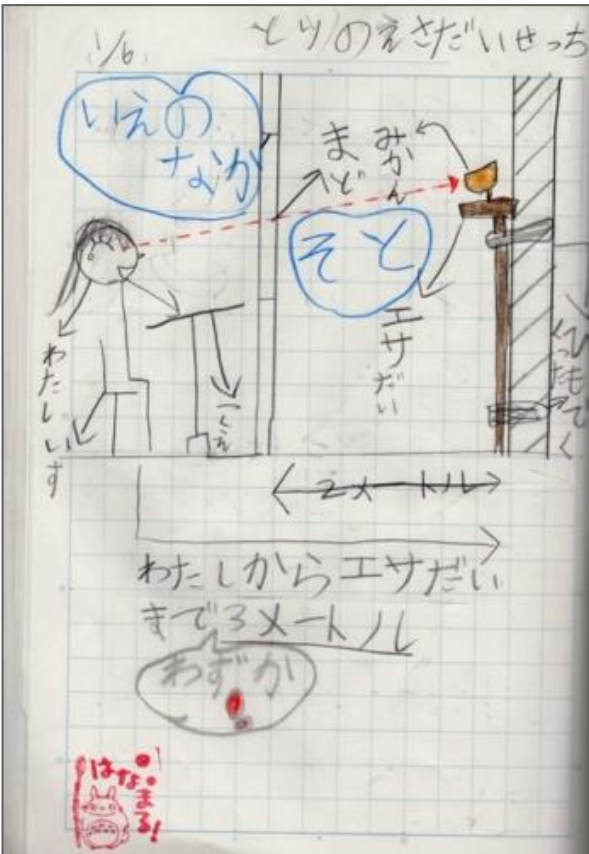 1/6
とりのえさだいせっち
いえの
なか
まど
みかん
そと
エサだい
わたし
いす
つくえ
ひもでく
くった
2メートル
わたしからエサだい
まで3メートル
わずか!
はなまる!